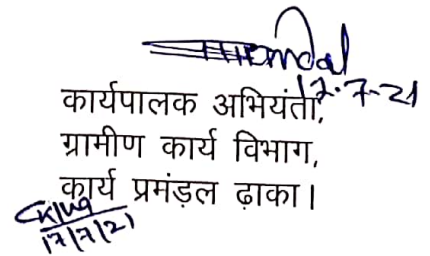 17.7-21
कार्यपालक अभियंता,
ग्रामीण कार्य विभाग,
कार्य प्रमंड़ल ढ़ाका।
17/7/21